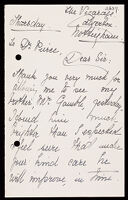 The Vicarage
Thursday
Nottingham
To Dr Pierce,
Dear Sir,
Thank you very much for
allowing me to see my
brother Mr. Gamble, yesterday
I found him much
brighter than I expected
feel sure that under
your kind care he
will improve, in time